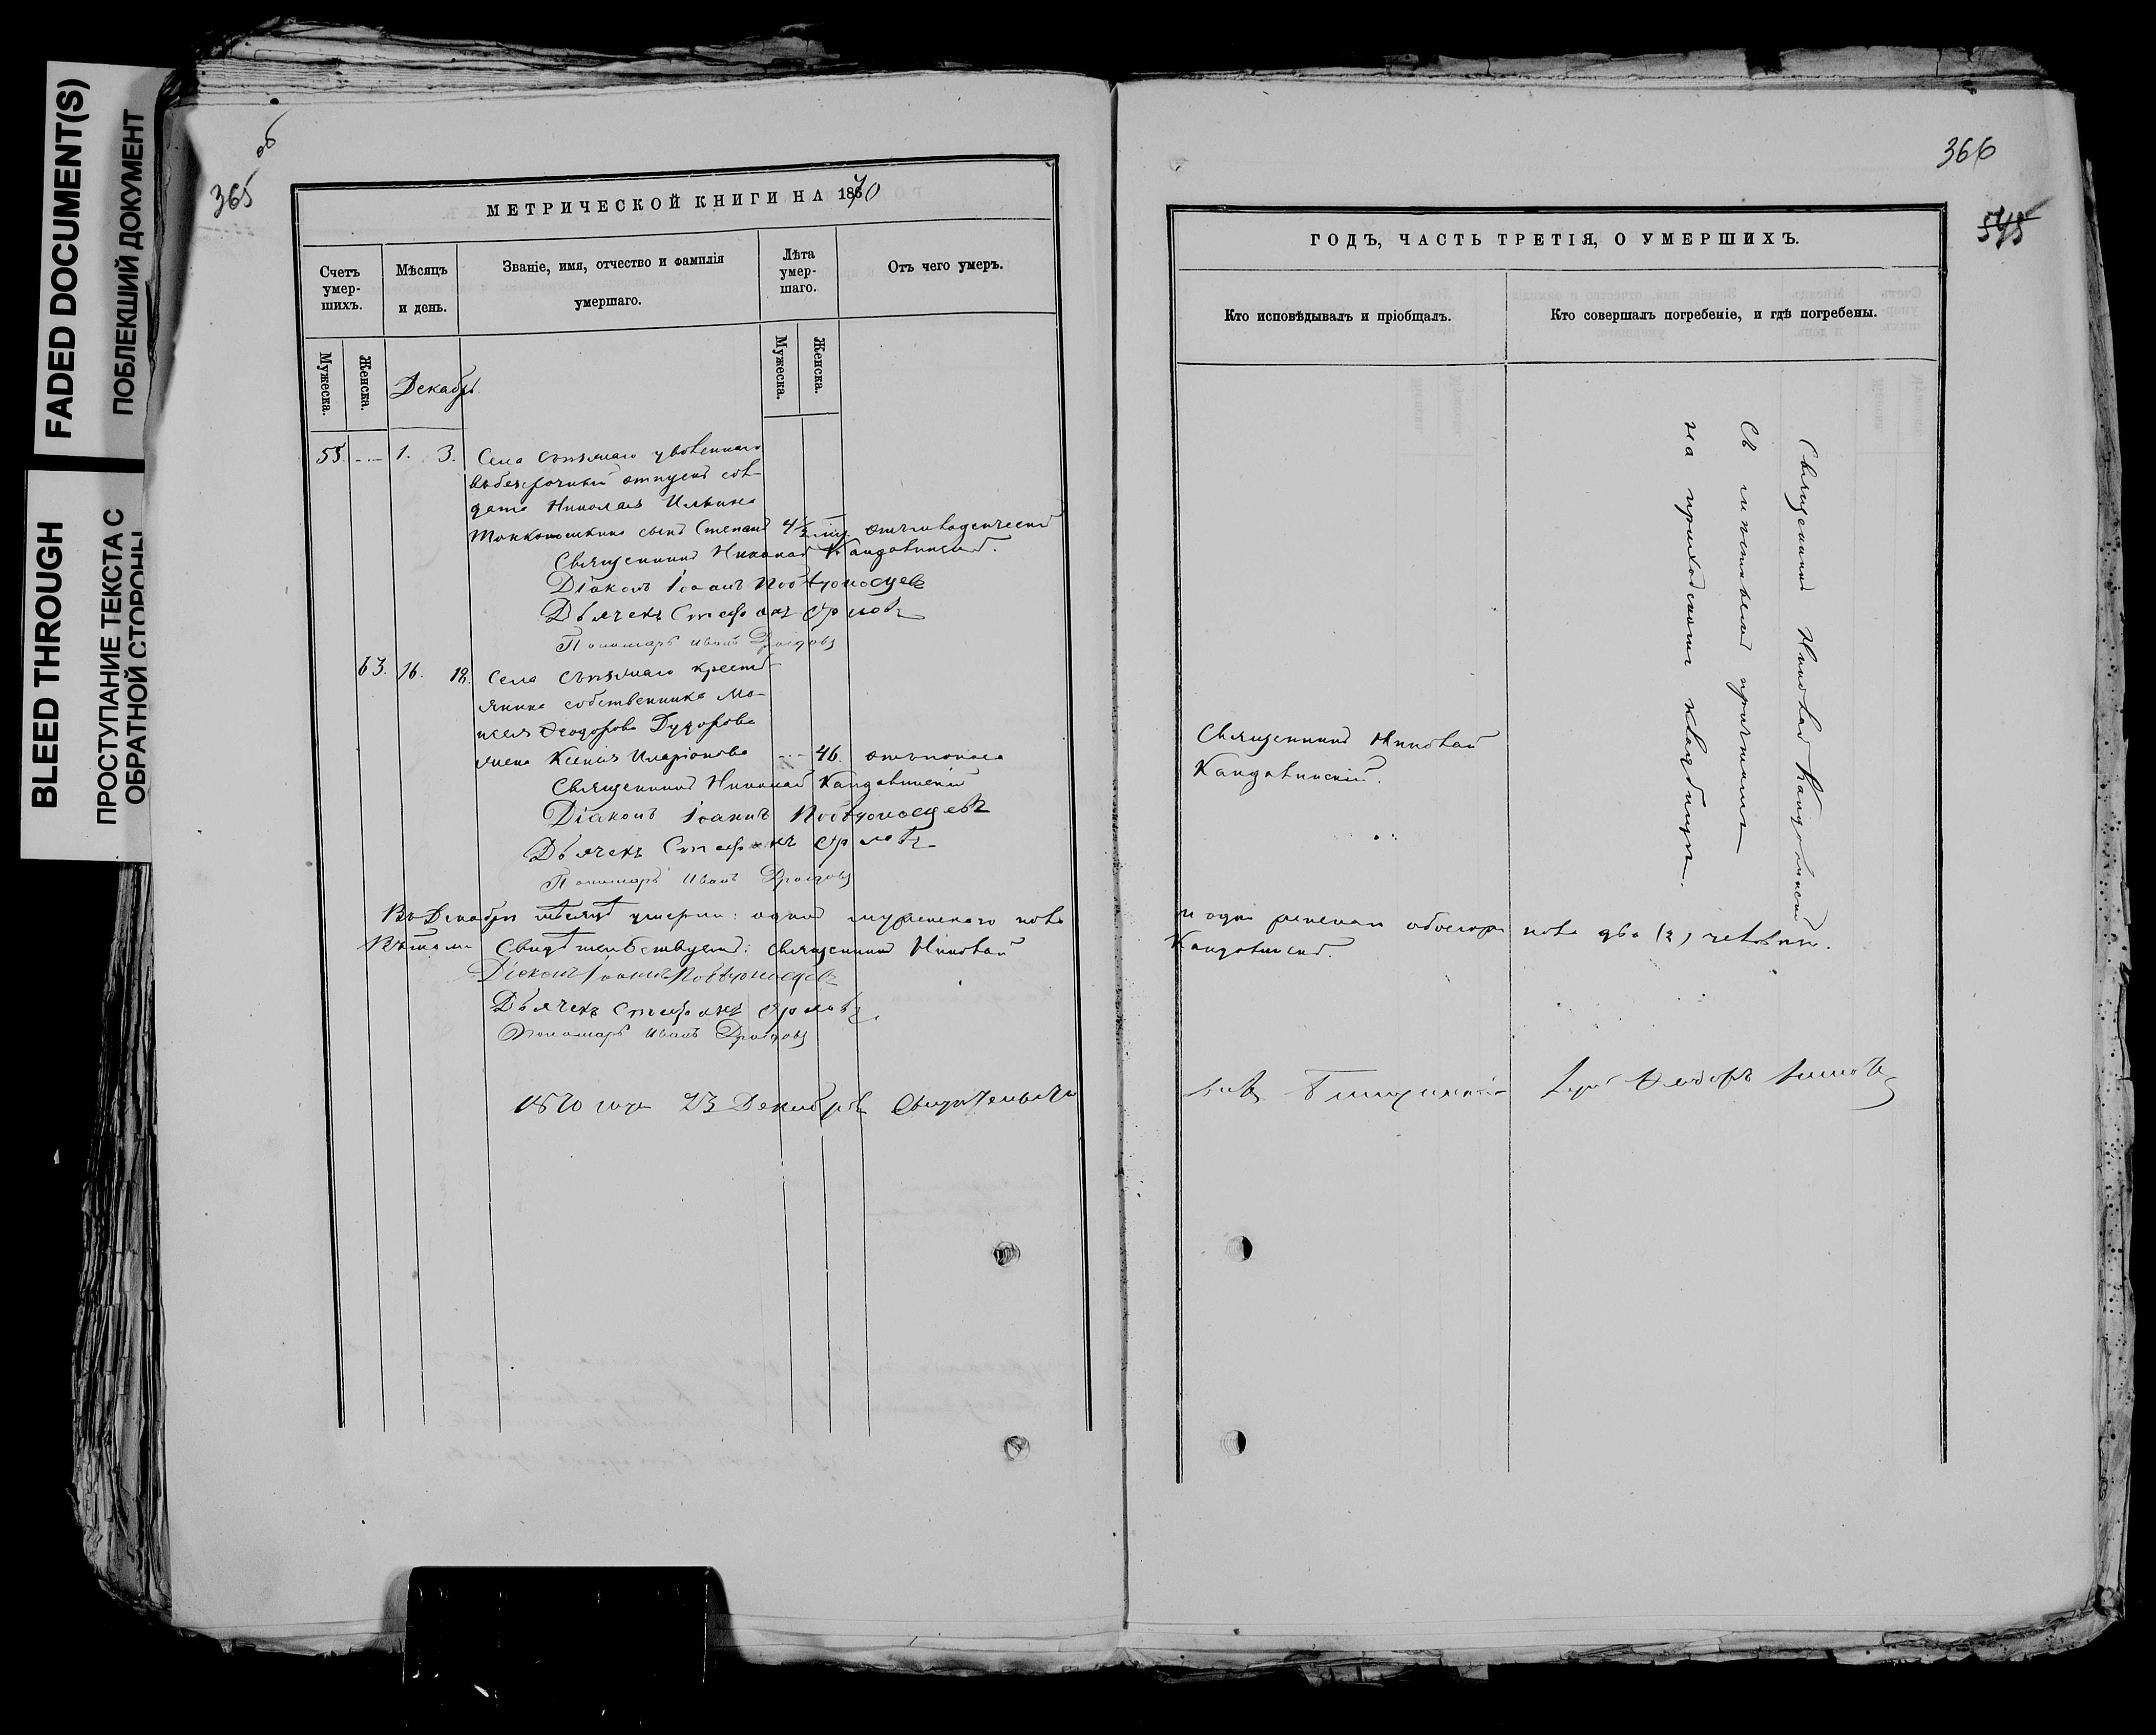 FADED DOCUMENT(S)
ПОБЛЕКШИЙ ДОКУМЕНТ
BLEED THROUGH
ПРОСТУПАНИЕ ТЕКСТА С
ОБРАТНОЙ СТОРОНЫ
об
365
МЕТРИЧЕСКОЙ КНИГИ НА 1870
Счетъ умершихъ.
Мѣсяцъ и день.
Званіе, имя, отчество и фамилія умершаго.
Лѣта умершаго.
Отъ чего умеръ.
Мужеска.
Женска.
Мужеска.
Женска.
Декабрь.
55. 1. 3. Села уволеннаго
въ безсрочный отпускъ сол-
дата Николая Ильина
сынъ Степанъ 4½
Священникъ Николай Кандалинскій.
Діаконъ Іоаннъ Побѣдоносцевъ
Дьячекъ Стефанъ Орловъ
Пономарь Иванъ Дроздовъ
63. 16. 18. Села крестъ-
янина собственника Мо-
исея Ѳеодорова Дудорова
жена Ксенія Иларіонова 46. отъ поноса
Священникъ Николай Кандалинскій
Діаконъ Іоаннъ Побѣдоносцевъ
Дьячекъ Стефанъ Орловъ
Пономарь Иванъ Дроздовъ
Въ Декабрѣ мѣсяцѣ умерли: одинъ мужескаго пола
Въ томъ свидѣтельствуемъ: священникъ Николай
Діаконъ Іоаннъ Побѣдоносцевъ
Дьячекъ Стефанъ Орловъ
Пономарь Иванъ Дроздовъ
1870 года 23 Декабря
366
545
ГОДЪ, ЧАСТЬ ТРЕТІЯ, О УМЕРШИХЪ.
Кто исповѣдывалъ и пріобщалъ.
Кто совершалъ погребеніе, и гдѣ погребены.
Священникъ Николай Кандалинскій
съ причтомъ
на приходскомъ кладбищѣ.
Священникъ Николай
Кандалинскій.
и одна женска обоего пола два (2) человѣка.
Кандалинскій.